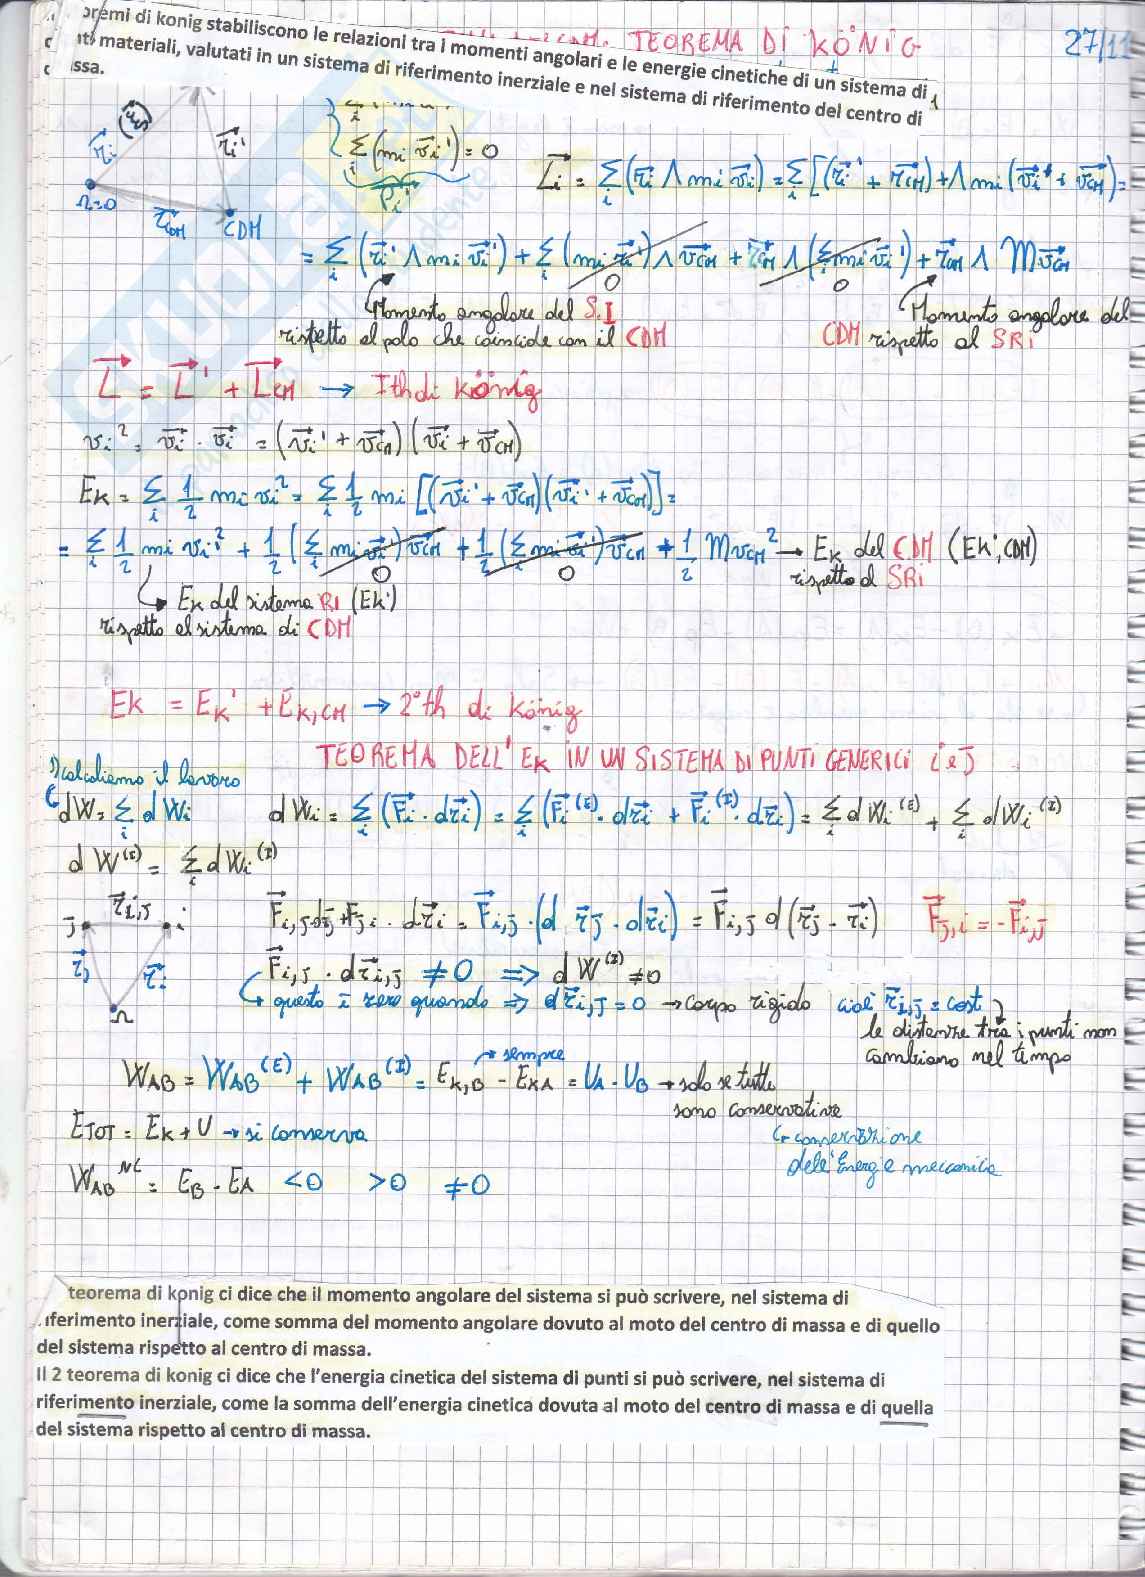 TEOREMA DI KÖNIG 27/11
oremi di konig stabiliscono le relazioni tra i momenti angolari e le energie cinetiche di un sistema di
materiali, valutati in un sistema di riferimento inerziale e nel sistema di riferimento del centro di
ssa.
Σi (mi vi') = 0
Pi'
ri ri' Ω=0 rCDM CDM
Li = Σi (ri Λ mi vi) = Σi [(ri' + rCM) + Λ mi (vi' + vCM) =
= Σi (ri' Λ mi vi') + Σi (mi ri') Λ vCM + rCM Λ (Σi mi vi') + rCM Λ M vCM
0 0
Momento angolare del S.I Momento angolare del
rispetto al polo che coincide con il CDM CDM rispetto al SRi
L = L' + LCM → I th di könig
vi² = vi · vi = (vi' + vCM) (vi + vCM)
EK = Σi 1/2 mi vi² = Σi 1/2 mi [(vi' + vCM)(vi' + vCM)] =
= Σi 1/2 mi vi'² + 1/2 (Σi mi vi') vCM + 1/2 (Σi mi vi') vCM + 1/2 M vCM² → EK del CDM (EK', CDM)
0 0 rispetto al SRi
EK del sistema RI (EK')
rispetto al sistema di CDM
EK = EK' + EK,CM → 2° th di könig
TEOREMA DELL' EK IN UN SISTEMA DI PUNTI GENERICI i e J
1) calcoliamo il lavoro
dW = Σi dWi dWi = Σi (Fi · dri) = Σi (Fi(E) · dri + Fi(I) · dri) = Σi dWi(E) + Σi dWi(I)
dW(I) = Σi dWi(I)
J ri,j i
Fi,j drj + Fj,i · dri = Fi,j · (d rj · dri) = Fi,j d (rj - ri) Fj,i = -Fi,j
rj ri Ω
Fi,j · dri,j ≠ 0 ⇒ dW(I) ≠ 0
questo è zero quando ⇒ dri,j = 0 → corpo rigido cioè ri,j = cost
le distanze tra i punti non
cambiano nel tempo
sempre
WAB = WAB(E) + WAB(I) = EK,B - EKA = UA - UB → solo se tutte
sono conservative
ETOT = EK + U → si conserva
conservazione
dell'Energie meccanica
WAB NC = EB - EA <0 >0 ≠0
teorema di konig ci dice che il momento angolare del sistema si può scrivere, nel sistema di
iferimento inerziale, come somma del momento angolare dovuto al moto del centro di massa e di quello
del sistema rispetto al centro di massa.
Il 2 teorema di konig ci dice che l'energia cinetica del sistema di punti si può scrivere, nel sistema di
riferimento inerziale, come la somma dell'energia cinetica dovuta al moto del centro di massa e di quella
del sistema rispetto al centro di massa.